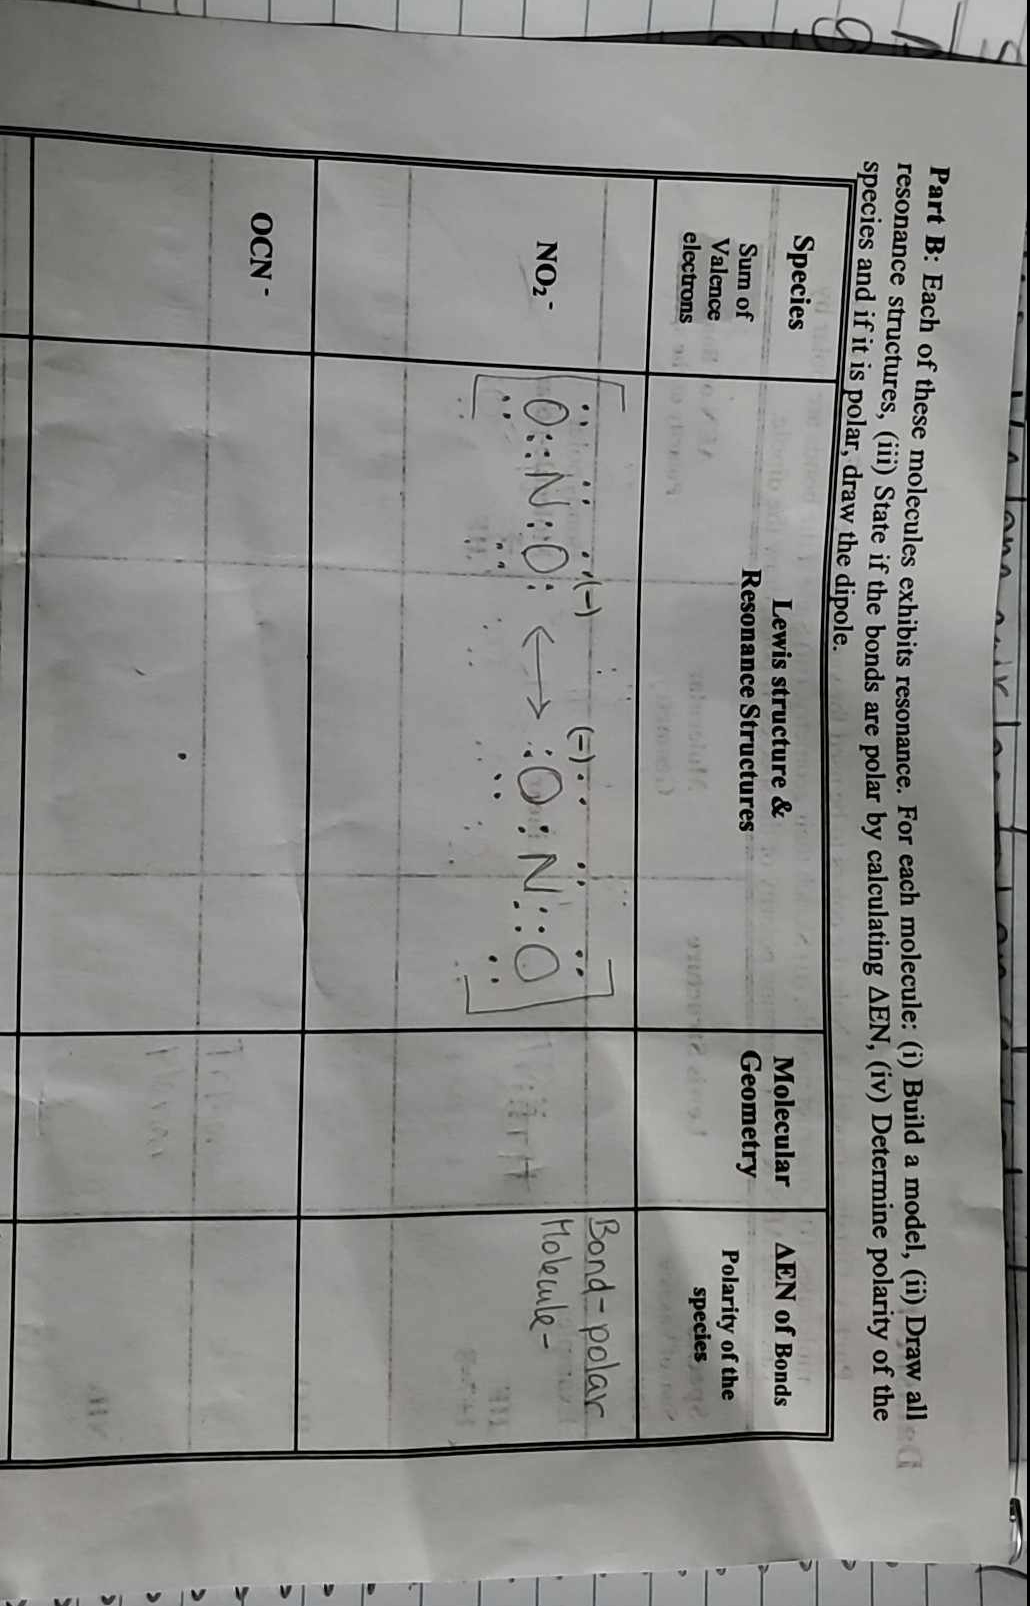 Part B: Each of these molecules exhibits resonance. For each molecule: (i) Build a model, (ii) Draw all
resonance structures, (iii) State if the bonds are polar by calculating ΔEN, (iv) Determine polarity of the
species and if it is polar, draw the dipole.
Species
Sum of
Valence
electrons
Lewis structure &
Resonance Structures
Molecular
Geometry
ΔEN of Bonds
Polarity of the
species
NO₂⁻
[O::N:O: (-) ↔ (-) :O:N::O]
Bond-polar
Molecule-
OCN⁻